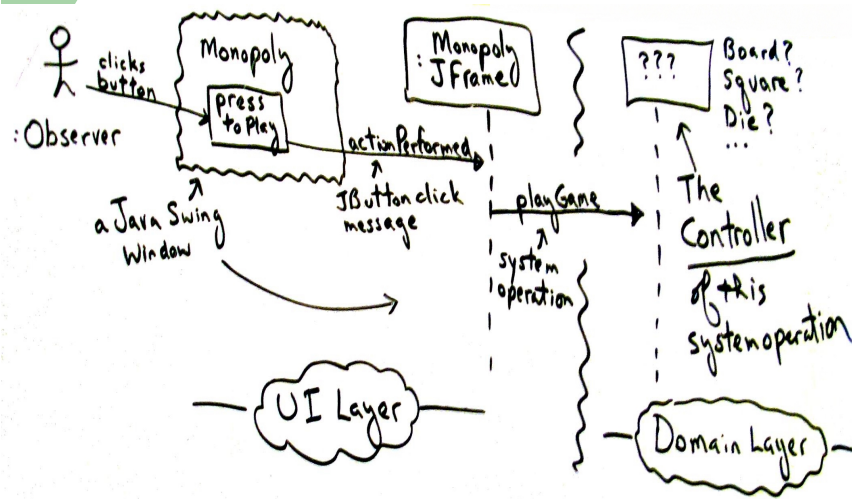 :Observer
clicks
button
Monopoly
press
to Play
a Java Swing
Window
actionPerformed
JButton click
message
Monopoly
: JFrame
playGame
system
operation
???
Board?
Square?
Die?
...
The
Controller
of this
system operation
UI Layer
Domain Layer